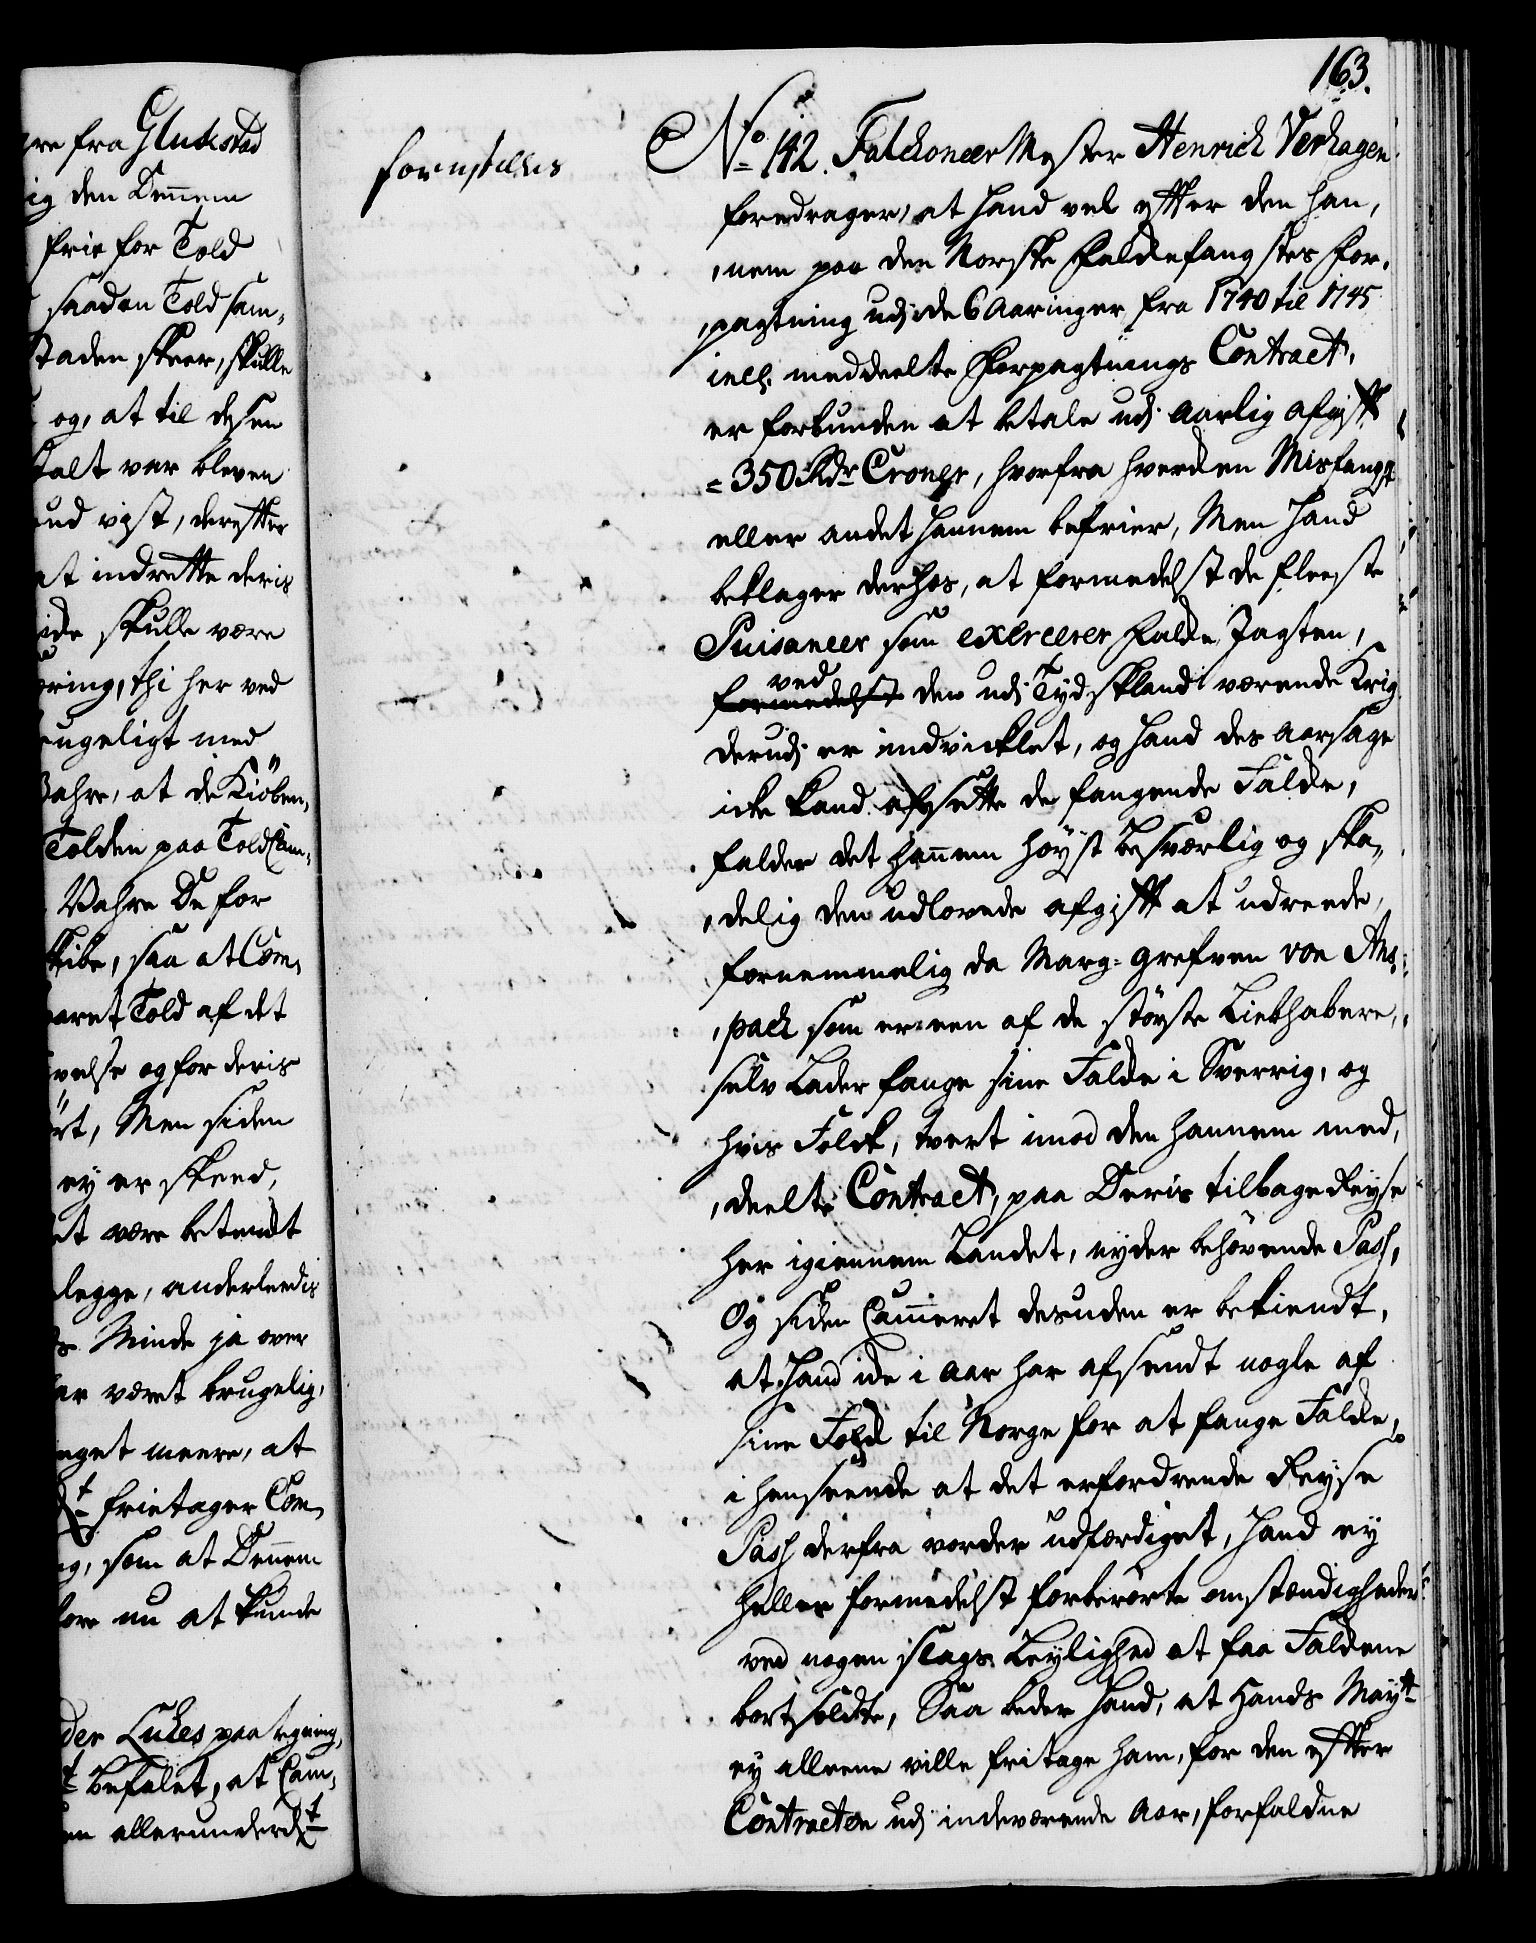 163.
re fra Glukstad
ig den Dennem
frie for Told
saaden Told sam,
staden skeer, skulle
og, at til dessen
talt var bleven
und vist, derefter
at indrette deris
ide skulle være
øring, thi her ved
rugeligt med
Vahre, at de Kiöben,
Tolden paa ToldCam,
Vahre De for
skibe, saa at Com,
paret Told af det
velse og for deris
ört, Men siden
ey er skeed,
et være betænkt
legge, anderleedis
s Minde ja over
ar været brugelig,
get meere, at
frietager Com,
g, som at Dennem
fore nu at kunde
der Lukes paategning,
befalet, at Cam,
en allerunderd:t
forestilles
No 142. Falckoneer Mester Henrich Verhagen
foredrager, at hand vel efter den han,
,nem paa den Norske Falckefangstes For,
,pagtning udj de 6 Aaringer fra 1740 til 1745
incl. meddeelte Forpagtnings Contract,
er forbunden at betale udj Aarlig afgift
= 350 Rdr Croner, hvorfra hverken Misfangst
eller andet hannem befrier, Men hand
beklager derhos, at formedelst de fleeste
Puisancer som exercerer Falcke Jagten,
formedelst ved den udj Tydskland værende Krig
derudj er indvicklet, og hand des aarsage
icke kand afsette de fangende Falcke,
falder det hannem höyst besværlig og ska,
,delig den udlovede afgift at udreede,
fornemmelig da Marg-Grefven von Ans,
,pach som er een af de störste Liebhabere,
selv Lader fange sine Falcke i Sverrig, og
hvis Folck, tvert imod den hannem med,
,deelte Contract, paa Deris tilbage Reyse
her igiennem Landet, nyder behövende Pass,
Og siden Cammeret desuden er bekiendt,
at hand icke i Aar har afsendt nogle af
sine Folck til Norge for at fange Falcke,
i henseende at det erfordrende Reyse
Pass derfra vorder udfærdiget, hand ey
heller formedelst forberörte omstændigheder
ved nogen slags Leylighed at faa Falckene
bortsolckte, Saa beder hand, at Hands Maytt
ey alleene ville fritage ham, for den efter
Contracten udj indeværende Aar, forfaldne